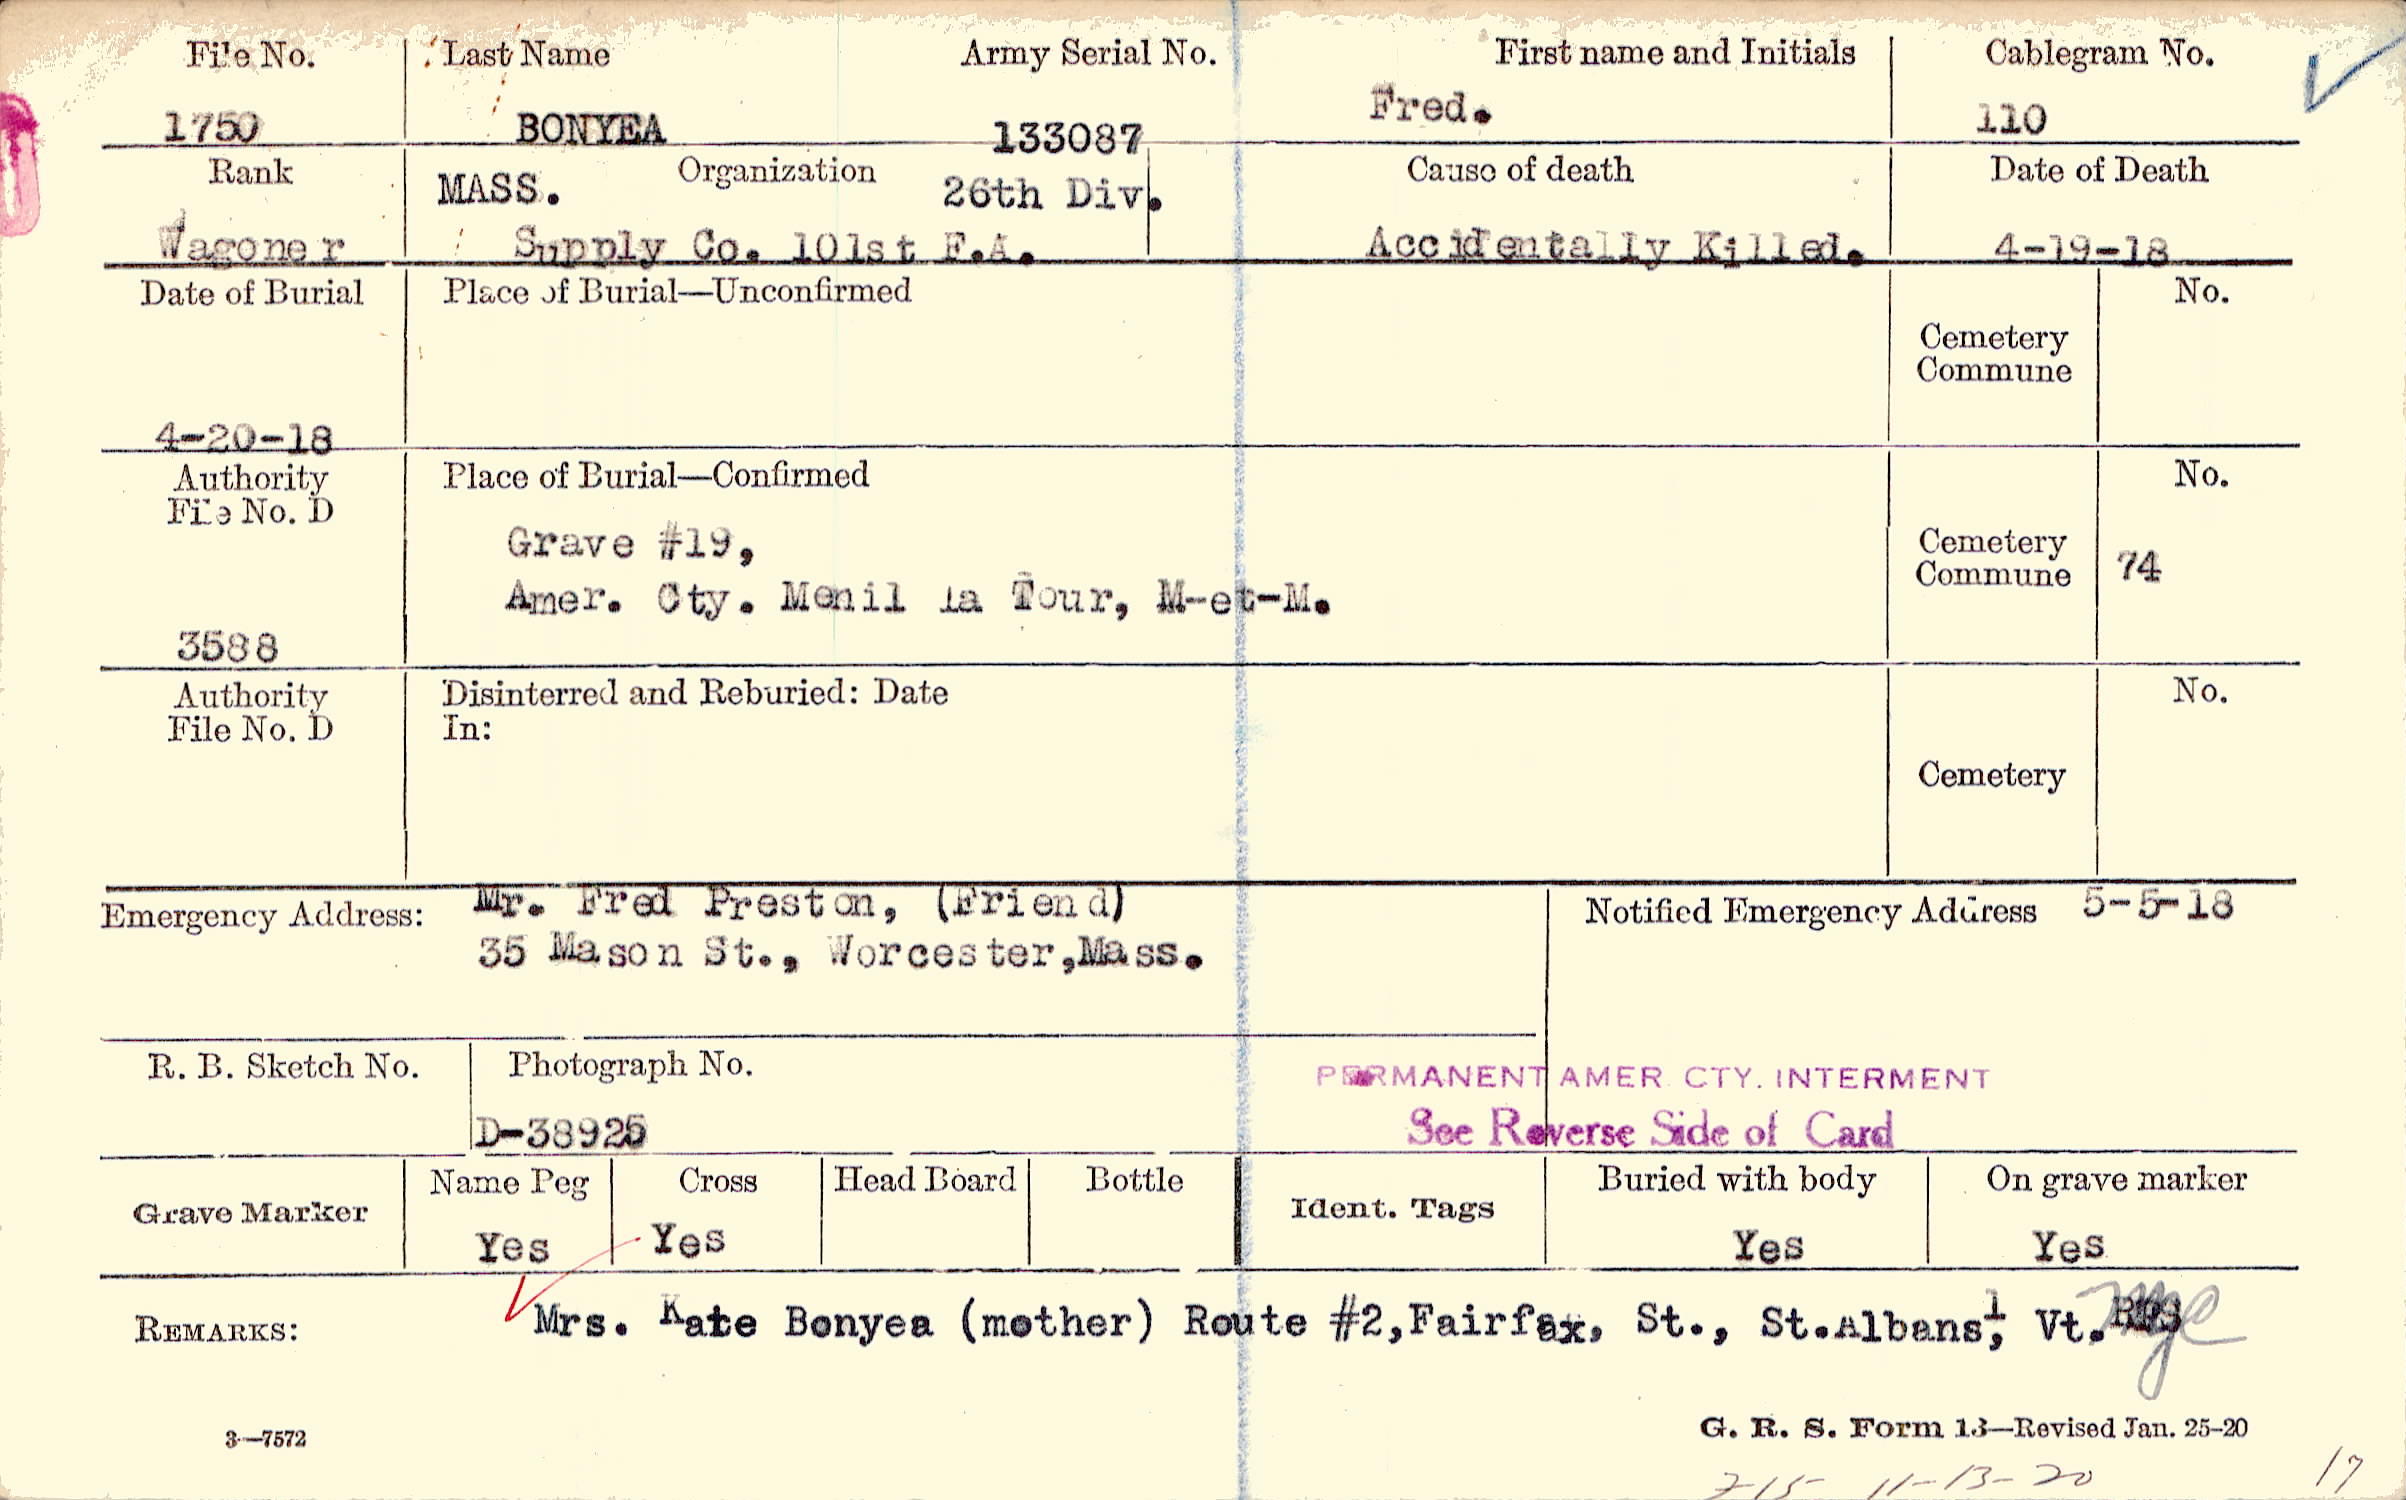 File No. Last Name Army Serial No. First name and Initials Cablegram No.
1750 BONYEA 133087 Fred. 110
Rank MASS. Organization 26th Div. Cause of death Date of Death
Wagoner Supply Co. 101st F.A. Accidentally Killed. 4-19-18
Date of Burial Place of Burial—Unconfirmed No.
Cemetery
Commune
4-20-18
Authority Place of Burial—Confirmed No.
File No. D
Grave #19,
Cemetery
Commune 74
Amer. Cty. Menil la Tour, M-et-M.
3588
Authority Disinterred and Reburied: Date No.
File No. D In:
Cemetery
Emergency Address: Mr. Fred Preston, (Friend) Notified Emergency Address 5-5-18
35 Mason St., Worcester,Mass.
R. B. Sketch No. Photograph No.
PERMANENT AMER CTY. INTERMENT
D-38925 See Reverse Side of Card
Grave Marker Name Peg Cross Head Board Bottle Ident. Tags Buried with body On grave marker
Yes Yes Yes Yes
REMARKS: Mrs. Kate Bonyea (mother) Route #2,Fairfax, St., St.Albans, Vt.
3—7572 G. R. S. Form 13—Revised Jan. 25-20
11-13-20 17